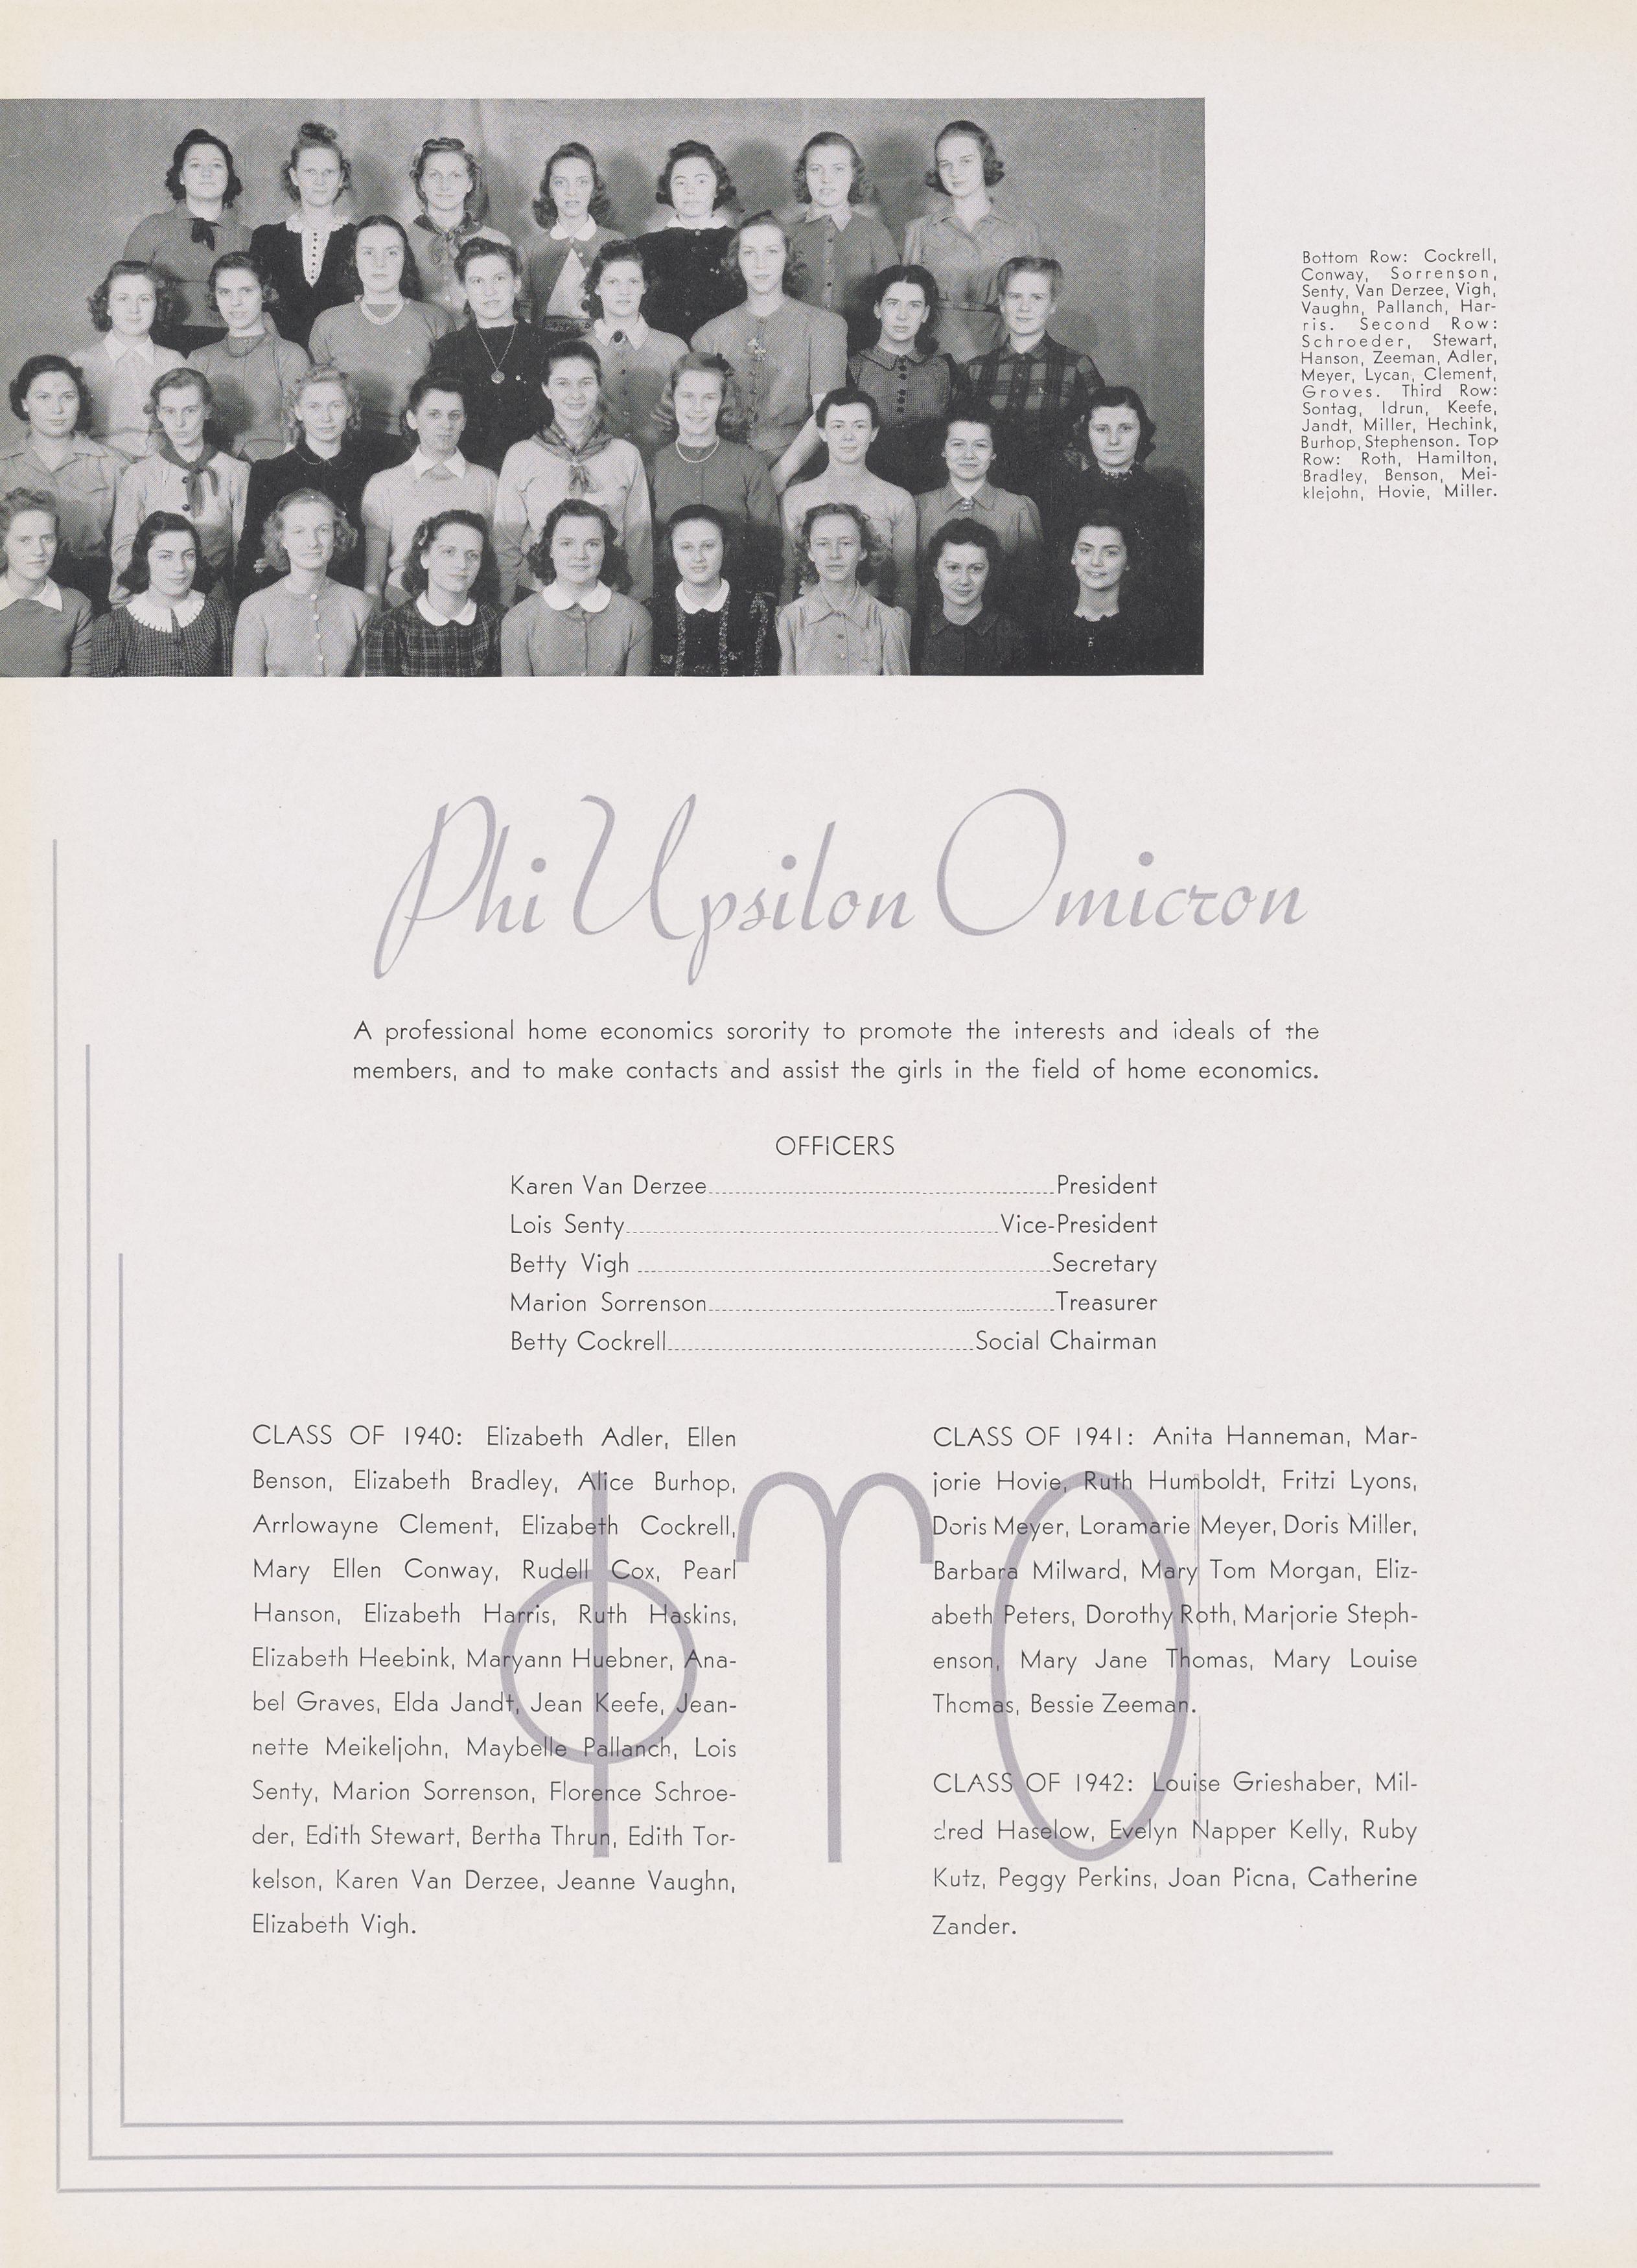 Bottom Row: Cockrell,
Conway, Sorrenson,
Senty, Van Derzee, Vigh,
Vaughn, Pallanch, Har-
ris. Second Row:
Schroeder, Stewart,
Hanson, Zeeman, Adler,
Meyer, Lycan, Clement,
Groves. Third Row:
Sontag, Idrun, Keefe,
Jandt, Miller, Hechink,
Burhop, Stephenson. Top
Row: Roth, Hamilton,
Bradley, Benson, Mei-
klejohn, Hovie, Miller.
Phi Upsilon Omicron
A professional home economics sorority to promote the interests and ideals of the
members, and to make contacts and assist the girls in the field of home economics.
OFFICERS
Karen Van Derzee President
Lois Senty Vice-President
Betty Vigh Secretary
Marion Sorrenson Treasurer
Betty Cockrell Social Chairman
CLASS OF 1940: Elizabeth Adler, Ellen
Benson, Elizabeth Bradley, Alice Burhop,
Arrlowayne Clement, Elizabeth Cockrell,
Mary Ellen Conway, Rudell Cox, Pearl
Hanson, Elizabeth Harris, Ruth Haskins,
Elizabeth Heebink, Maryann Huebner, Ana-
bel Graves, Elda Jandt, Jean Keefe, Jean-
nette Meikeljohn, Maybelle Pallanch, Lois
Senty, Marion Sorrenson, Florence Schroe-
der, Edith Stewart, Bertha Thrun, Edith Tor-
kelson, Karen Van Derzee, Jeanne Vaughn,
Elizabeth Vigh.
CLASS OF 1941: Anita Hanneman, Mar-
jorie Hovie, Ruth Humboldt, Fritzi Lyons,
Doris Meyer, Loramarie Meyer, Doris Miller,
Barbara Milward, Mary Tom Morgan, Eliz-
abeth Peters, Dorothy Roth, Marjorie Steph-
enson, Mary Jane Thomas, Mary Louise
Thomas, Bessie Zeeman.
CLASS OF 1942: Louise Grieshaber, Mil-
dred Haselow, Evelyn Napper Kelly, Ruby
Kutz, Peggy Perkins, Joan Picna, Catherine
Zander.
ΦΥΟ